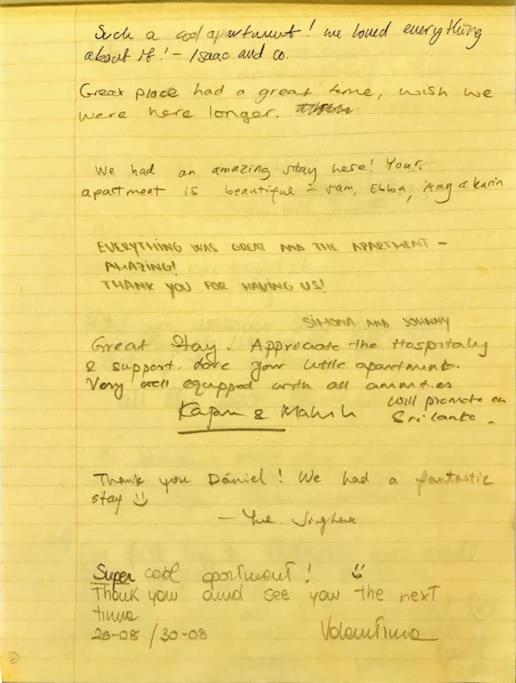 Such a cool apartment! we loved everything
about it! - Isaac and co.
Great place had a great time, wish we
were here longer.
We had an amazing stay here! Your
apartment is beautiful - Sam, Ebba, Amy & Karin
EVERYTHING WAS GREAT AND THE APARTMENT -
AMAZING!
THANK YOU FOR HAVING US!
SIMONA AND JOHNNY
Great Stay. Appreciate the Hospitality
& support. Love your little apartment.
Very well equipped with all
will promote in
& Sri Lanka.
Thank you Dániel! We had a fantastic
stay
- The
Super cool apartment!
Thank you and see you the next
time
20-08 / 30-08 Valentina